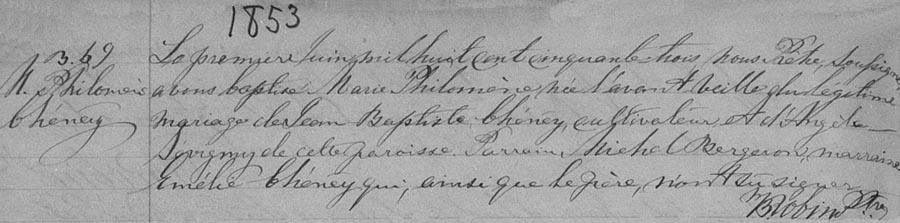 1853
B.69
M. Philomène
Chéney
La première Juin, mil huit cent cinquante trois, nous Prêtre, soussigné,
avons baptisé Marie Philomène, née l'avant veille, du légitime
mariage de Jean Baptiste Chéney, cultivateur, et d'Angèle
de cette paroisse. Parrain, Michel Bergeron, marraine
Emélie Chéney qui, ainsi que le père, n'ont su signer.
Ptre